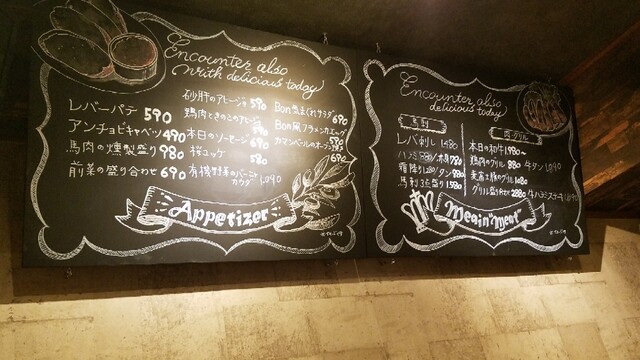 Encounter also
with delicious today
レバーパテ 590
アンチョビキャベツ 490
馬肉の燻製盛り 980
前菜の盛り合わせ 690
砂肝のアヒージョ 590
鶏肉ときのこのアヒージョ 690
本日のソーセージ 690
桜ユッケ 580
有機野菜のバーニャカウダ 1,090
Bon気まぐれサラダ 690
Bon風フラメンカエッグ 590
カマンベールのオーブン焼 690
Appetizer
Encounter also
delicious today
馬刺
レバ刺し 1,480
霜降り 1,280
タン 980
馬刺3点盛り 1,580
肉・グリル
本日の和牛 1,980~
鶏肉のグリル 880
牛タン 1,090
グリル盛り合わせ 2,880
牛ハラミステーキ
Meain"Meat"